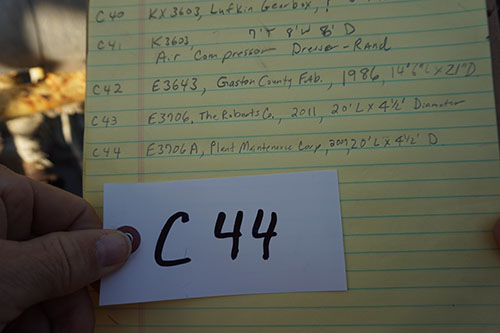 C40 KX3603, Lufkin Gearbox,
C41 K3603, 7'T 8'W 8' D
Air Compressor Dresser-Rand
C42 E3643, Gaston County Fab., 1986, 14'6"L X 21"D
C43 E3706, The Roberts Co., 2011, 20'L X 4½' Diameter
C44 E3706A, Plant Maintenance Corp, 20'L X 4½' D
C 44